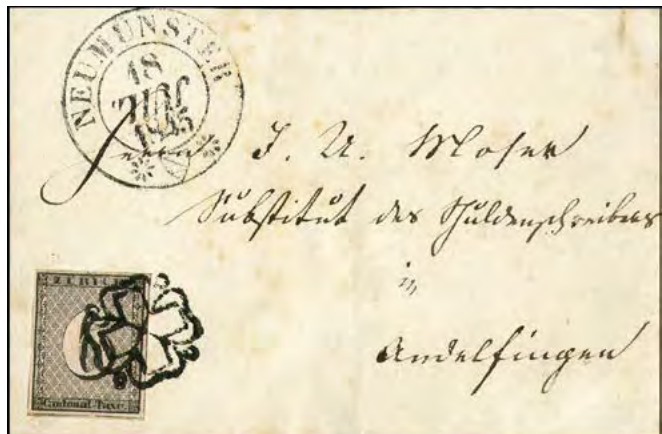 NEUMÜNSTER
18
JULI
1845
Herrn J. U. Moser
Substitut des Schuldenschreibers
in
Andelfingen
ZÜRICH
6
Cantonal-Taxe.